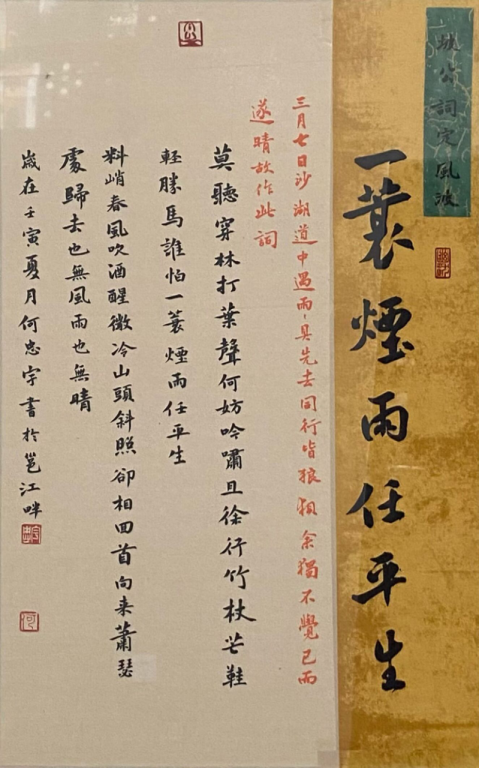 坡公詞定風波
一蓑煙雨任平生
三月七日沙湖道中遇雨〻具先去同行皆狼狽余獨不覺已而
遂晴故作此詞
莫聽穿林打葉聲何妨吟嘯且徐行竹杖芒鞋
軽勝馬誰怕一蓑煙雨任平生
料峭春風吹酒醒微冷山頭斜照卻相回首向来蕭瑟
處歸去也無風雨也無晴
歲在壬寅夏月何忠字書於邕江畔
何